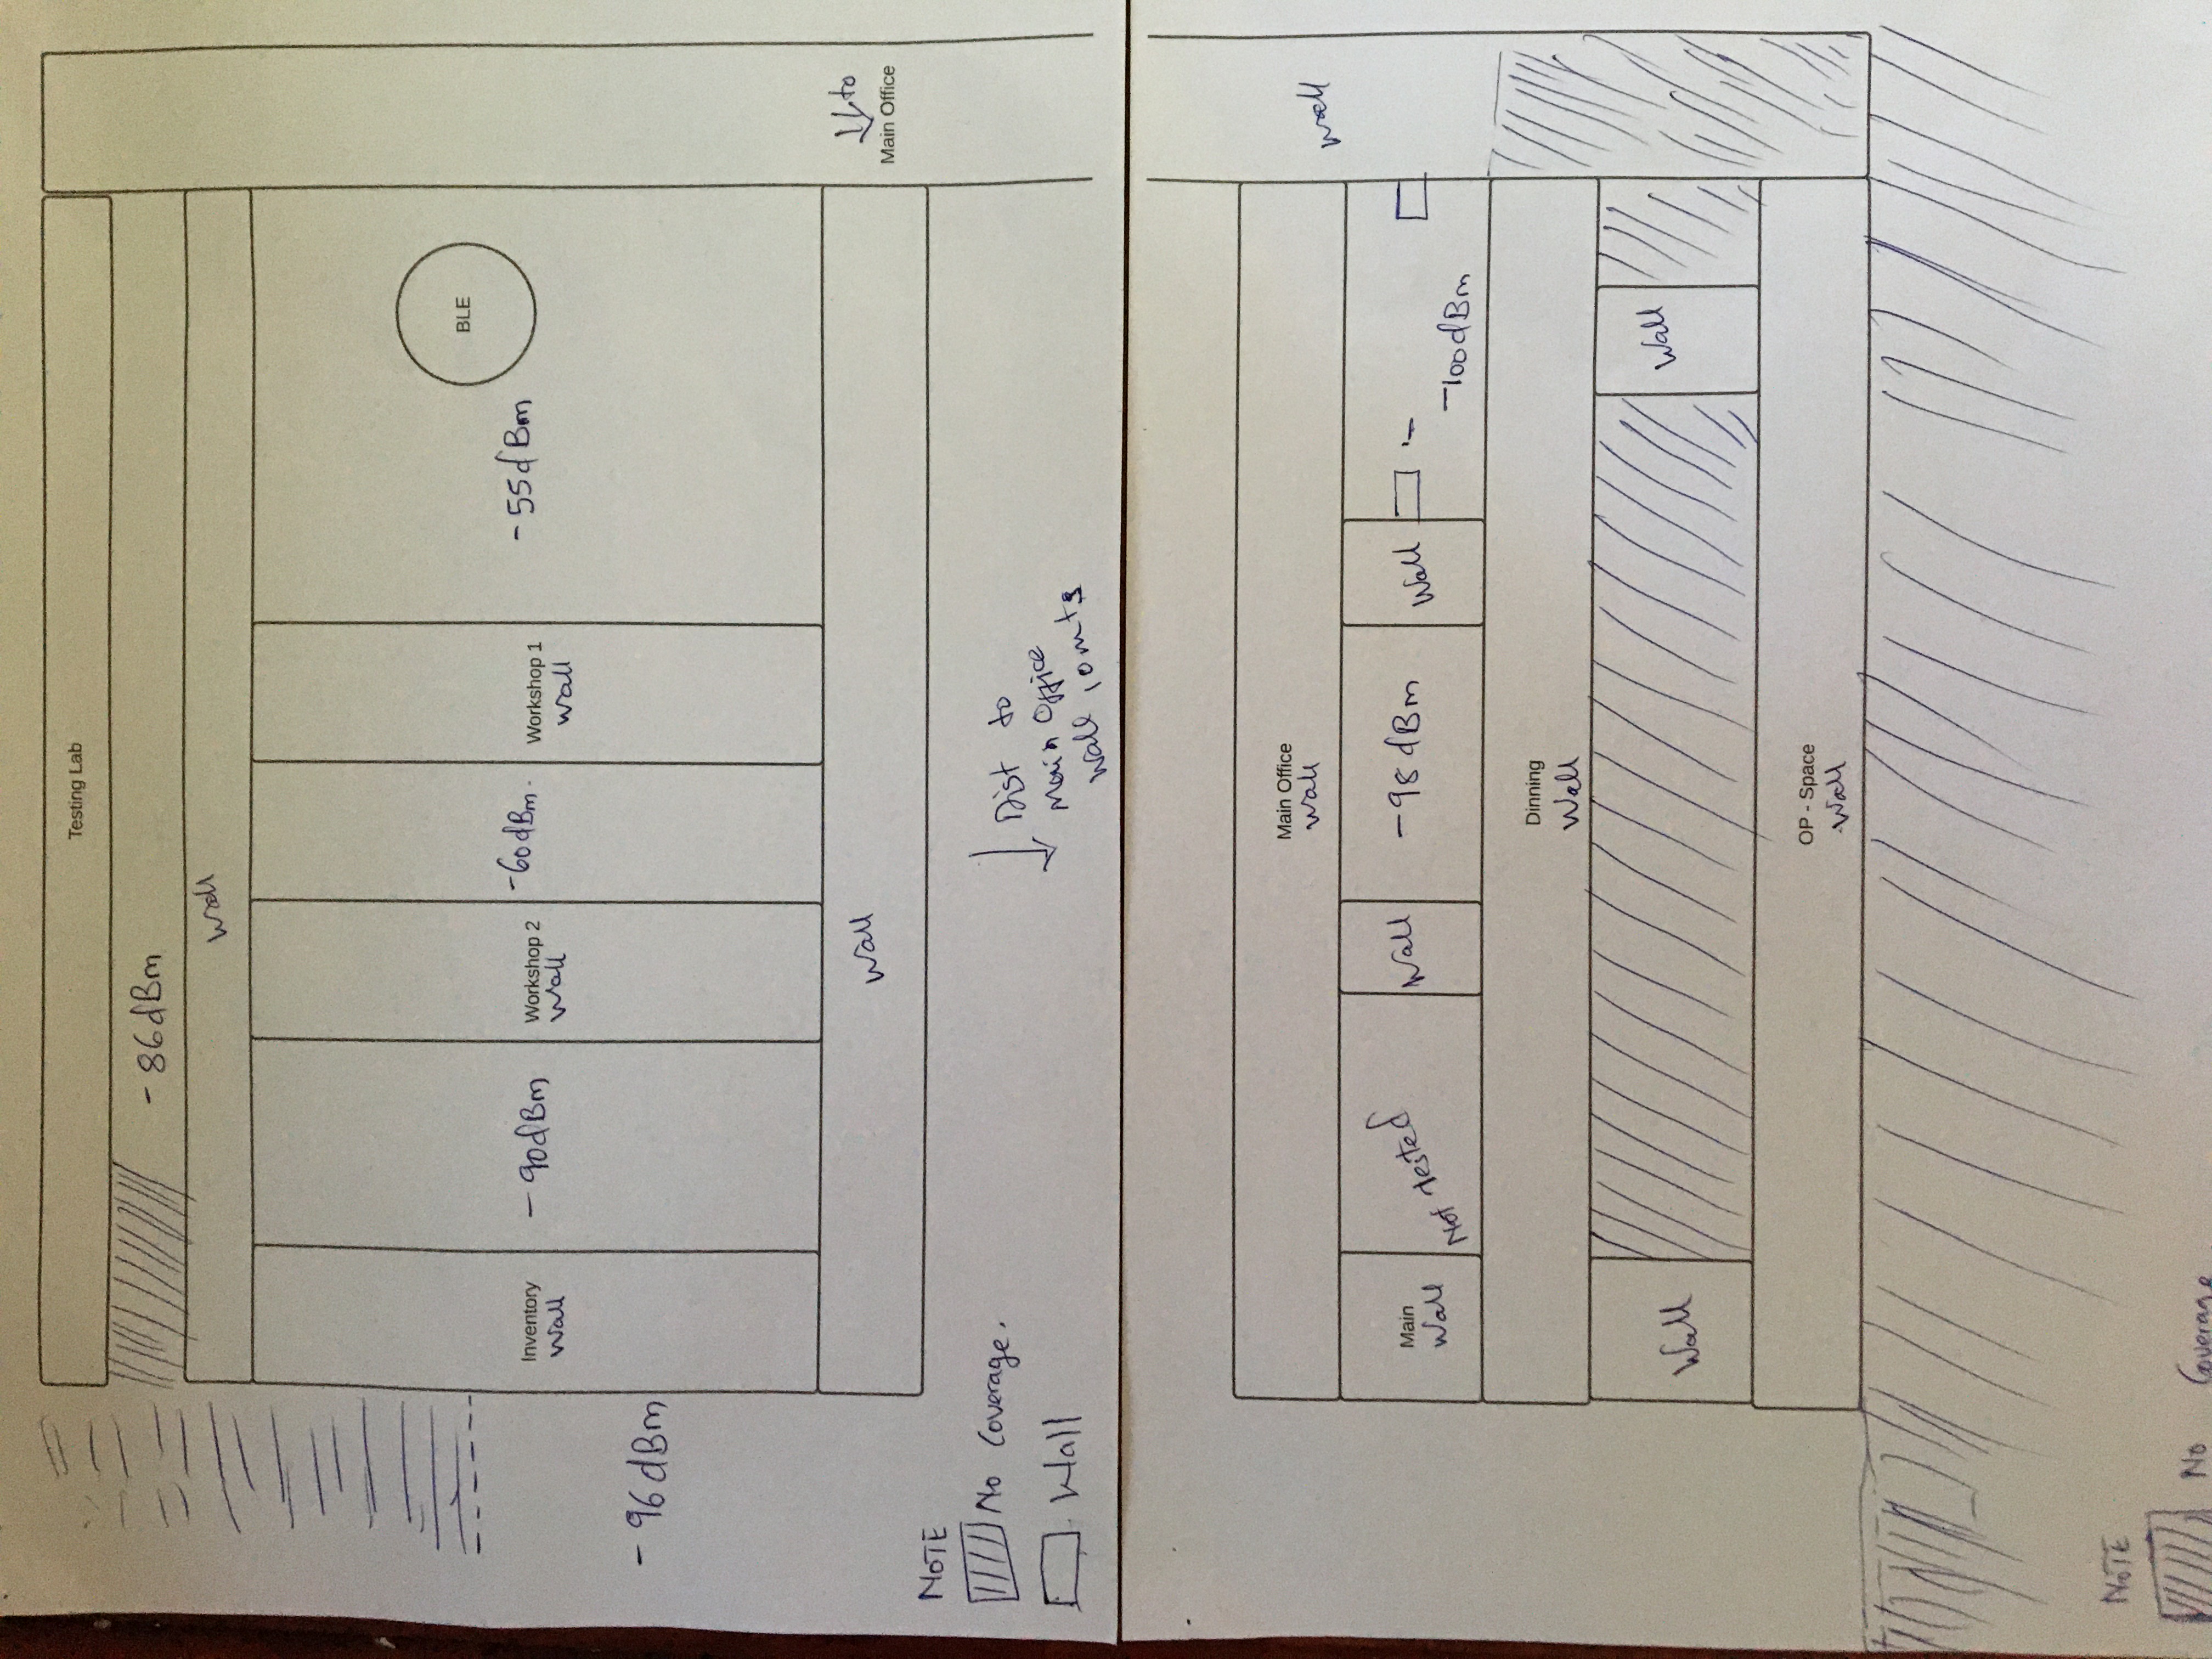 Testing Lab
-86dBm
Wall
BLE
-90dBm
-60dBm.
-55dBm
Inventory
Wall
Workshop 2
Wall
Workshop 1
Wall
-96dBm
Wall
to
Main Office
NOTE
No Coverage.
Wall
Dist to
Main Office
Wall 10mts
Main Office
Wall
Wall
Main
Wall
Not Tested
Wall
-98dBm
Wall
-100dBm
Dinning
Wall
Wall
Wall
OP - Space
Wall
NOTE
No Coverage